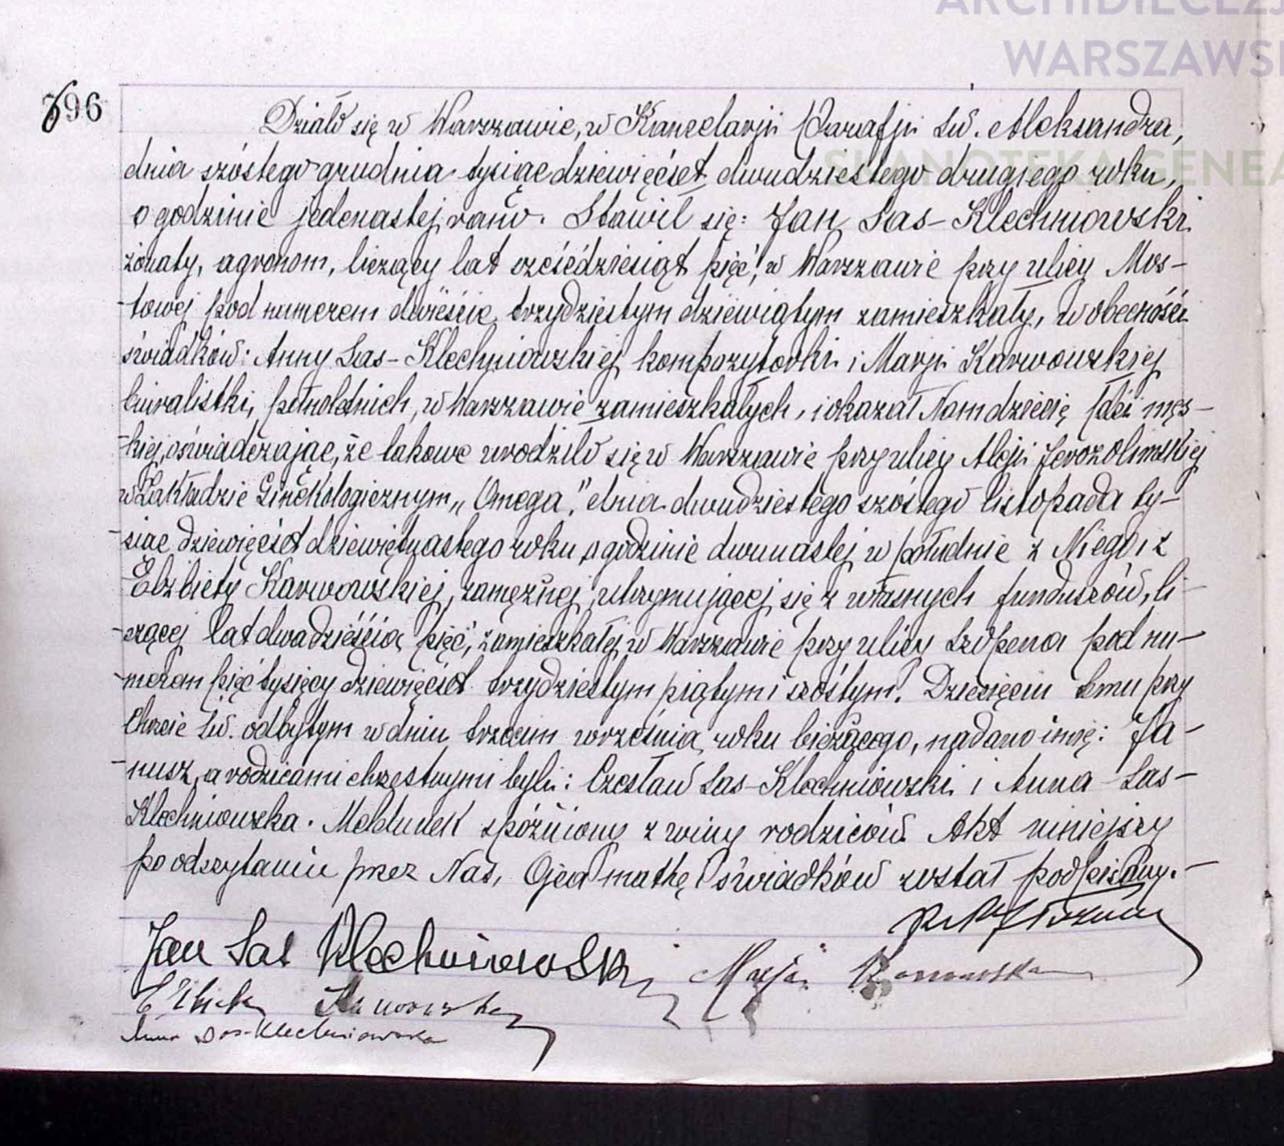 ARCHIDIECEZJ
WARSZAWS
SKANOTEKA GENEA
696
Działo się w Warszawie, w Kancelarji Parafji św. Aleksandra,
dnia szóstego grudnia tysiąc dziewięćset dwudziestego drugiego roku,
o godzinie jedenastej rano. Stawił się: Jan Sas-Klechniowski
żonaty, agronom, liczący lat sześćdziesiąt pięć, w Warszawie przy ulicy Mos-
towej pod numerem dwieście trzydziestym dziewiątym zamieszkały, w obecności
świadków: Anny Sas-Klechniowskiej kompozytorki i Marji Karwowskiej
biuralistki, pełnoletnich, w Warszawie zamieszkałych, i okazał Nam dziecię płci męs-
kiej, oświadczając, że takowe urodziło się w Warszawie przy ulicy Aleji Jerozolimskiej
w Zakładzie Ginekologicznym "Omega," dnia dwudziestego szóstego listopada ty-
siąc dziewięćset dziewiętnastego roku, o godzinie dwunastej w południe z Niego i z
Elżbiety Karwowskiej, zamężnej, utrzymującej się z własnych funduszów, li-
czącej lat dwadzieścia pięć, zamieszkałej w Warszawie przy ulicy Szopena pod nu-
merem pięć tysięcy dziewięćset trzydziestym piątym i szóstym. Dziecięciu temu przy
Chrzcie św. odbytym w dniu trzecim września roku bieżącego, nadano imię: Ja-
nusz, a rodzicami chrzestnymi byli: Czesław Sas-Klechniowski i Anna Sas-
Klechniowska. Meldunek spóźniony z winy rodziców. Akt niniejszy
po odczytaniu przez Nas, Ojca matkę i świadków został podpisany.-
Jan Sas Klechniowski Marja Karwowska
Elżbieta Karwowska
Anna Sas-Klechniowska